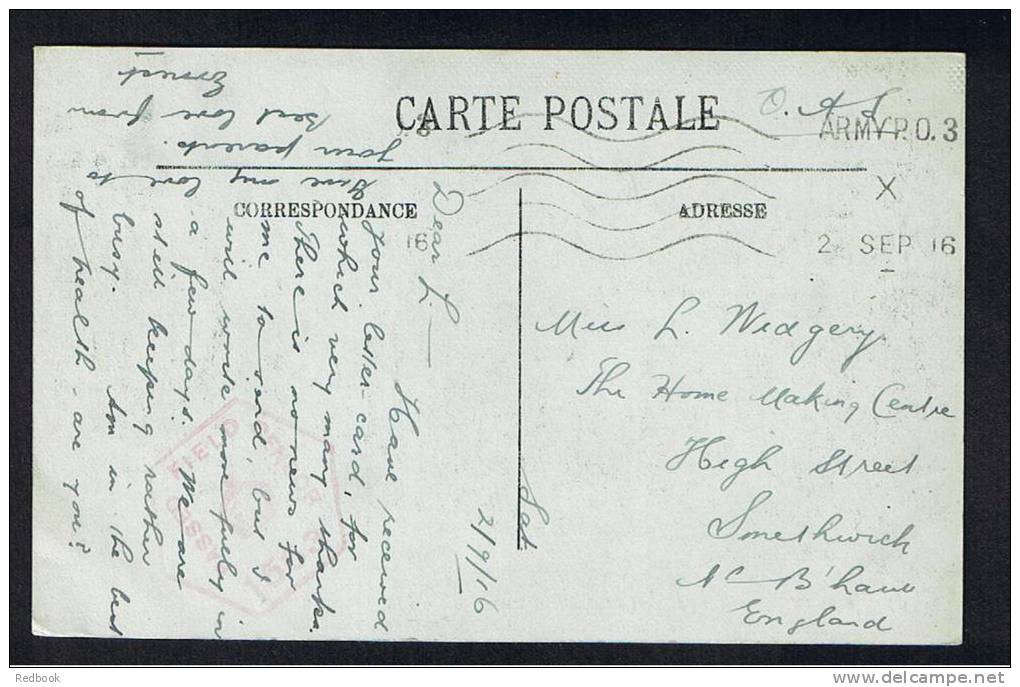 CARTE POSTALE
O. A. S.
ARMY P.O. 3
X
CORRESPONDANCE
ADRESSE
16
2 SEP 16
Sat 2/9/16
Dear L —
Have received
your letter-card, for
which very many thanks.
There is no news for
me to send, but I
will write more fully in
a few days. We are
still keeping rather
busy. Am in the best
of health - are you?
Give my love to
your parents.
Best love from
Ernest
Miss L. Widgery
The Home Making Centre
High Street
Smethwick
Nr B'ham
England
FIELD CENSOR
PASSED
Redbook
delcampe.net